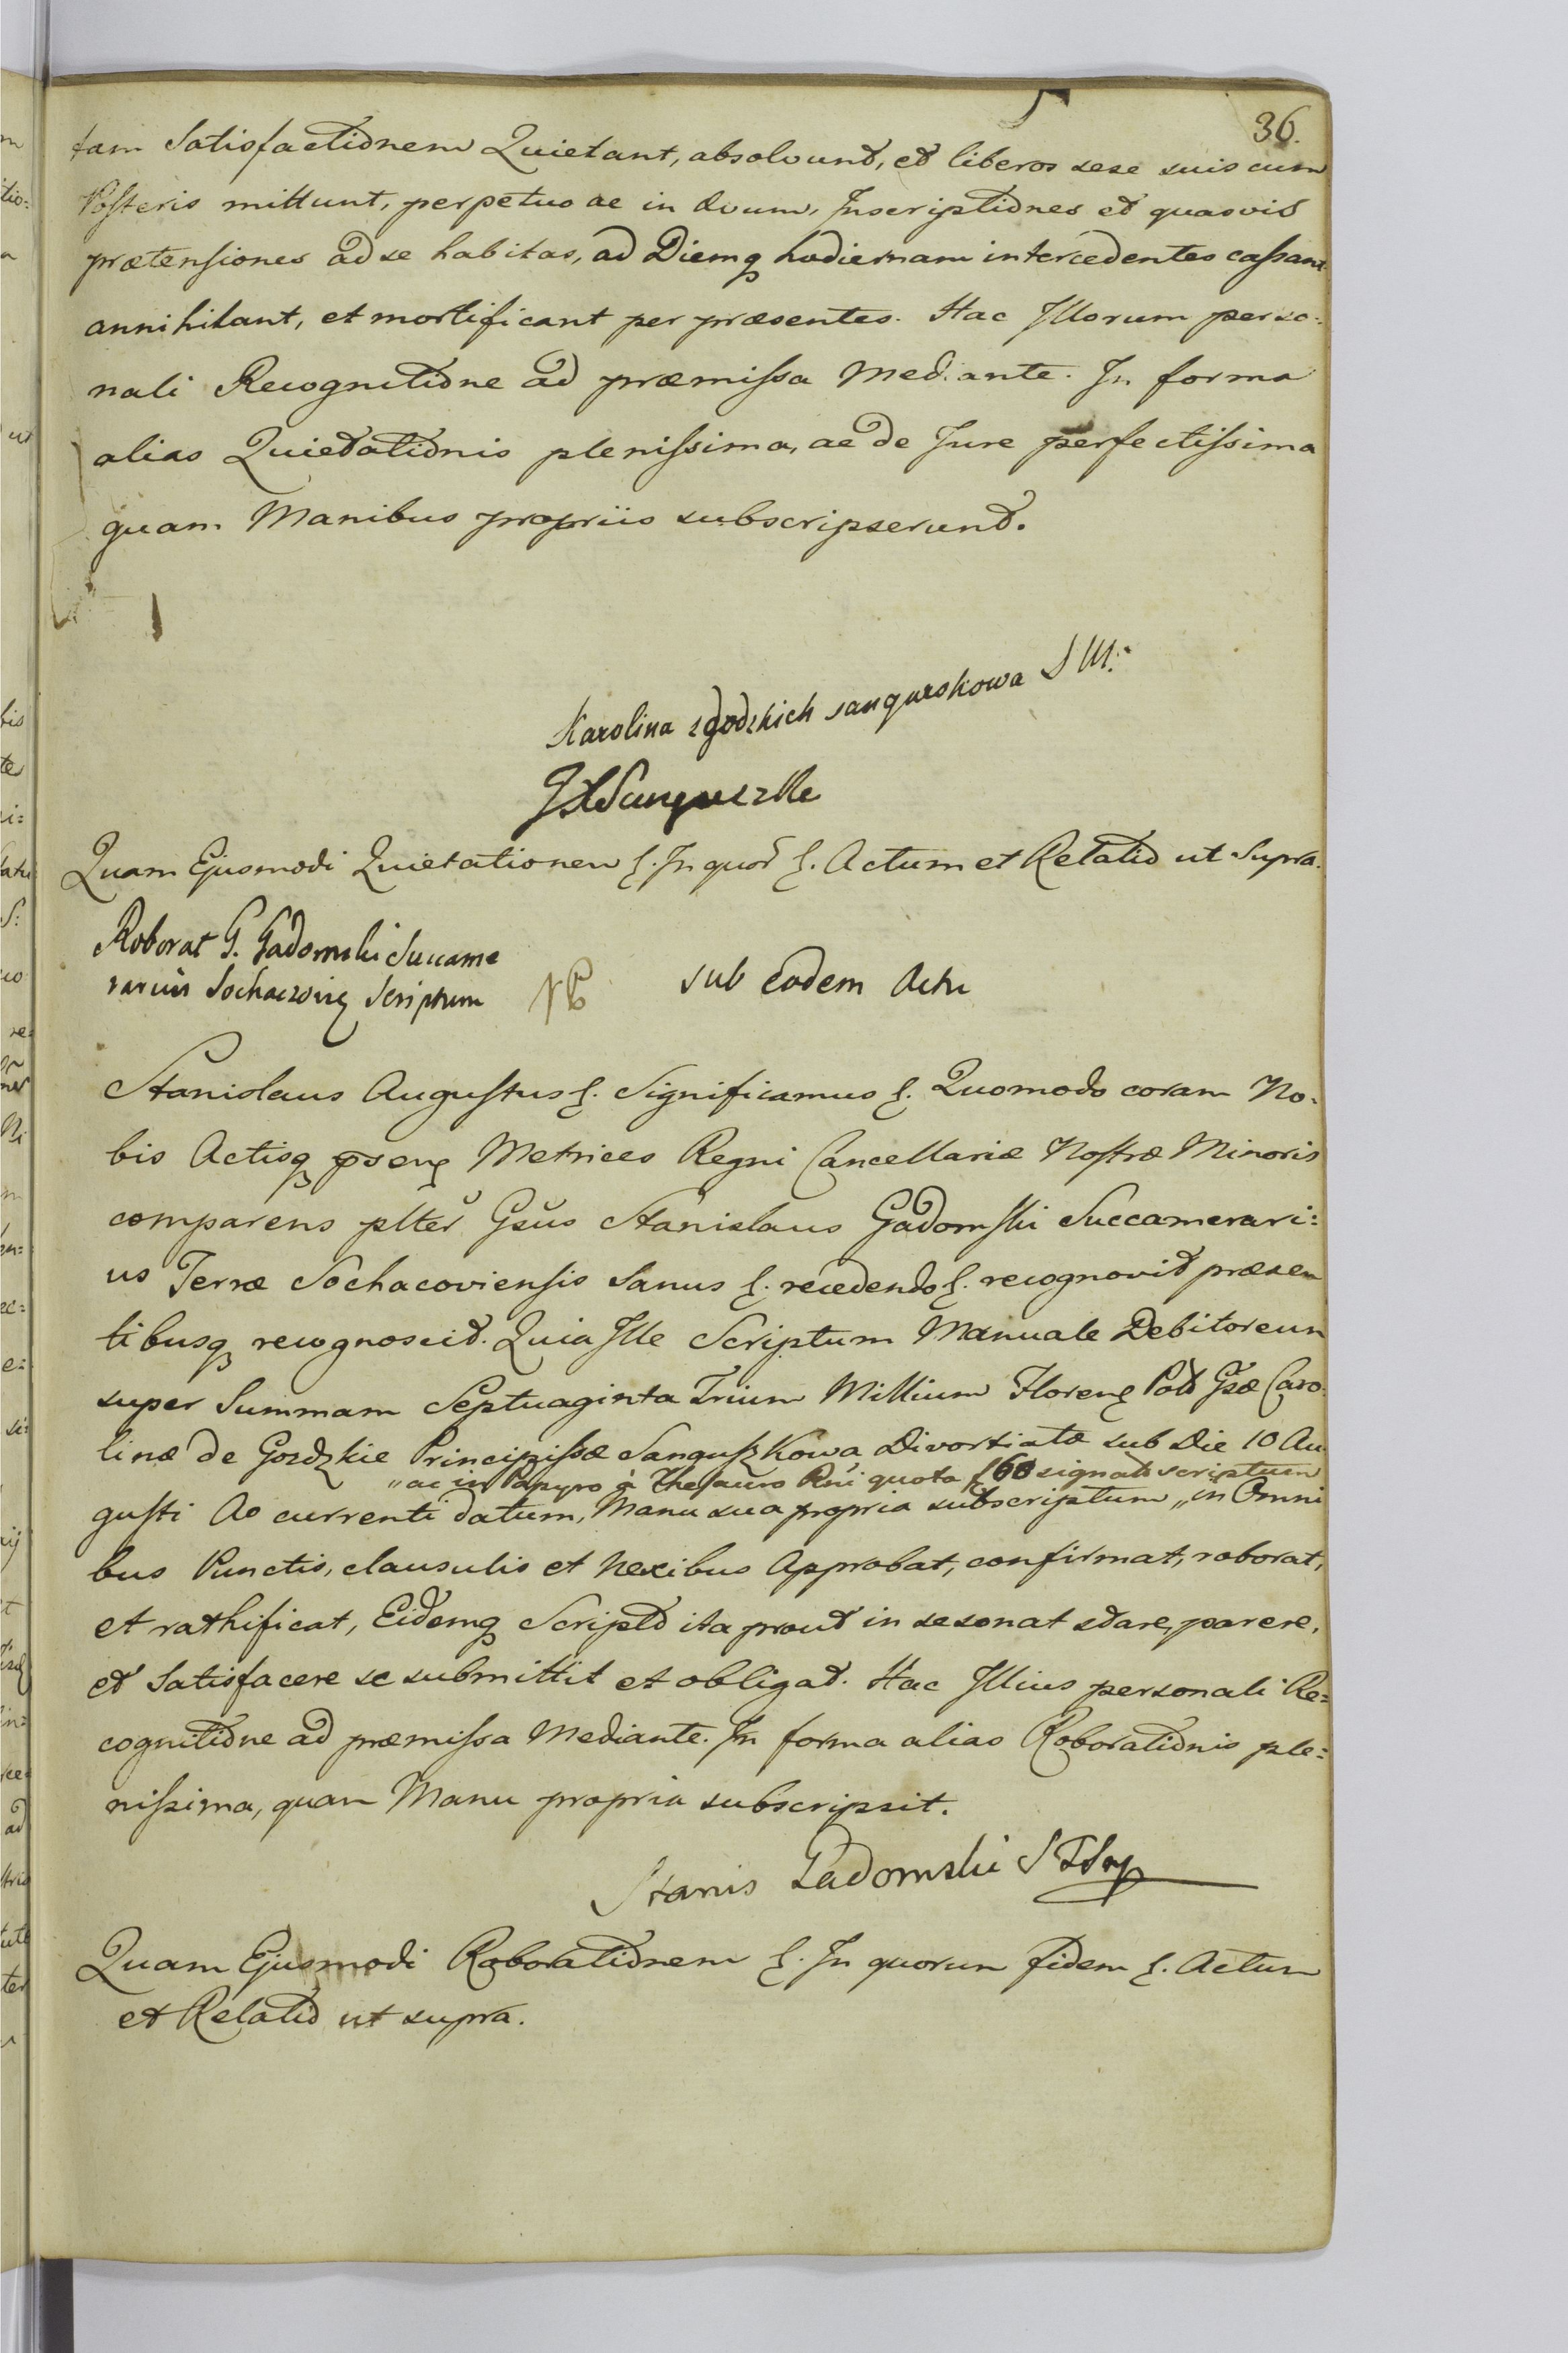 36.
tam Satisfactionem Quietant, absolvunt, et liberos sese suis cum
Posteris mittunt, perpetuo ac in ævum, Inscriptiones et quasvis
prætensiones ad se habitas, ad Diemq hodiernam intercedentes cassant
annihilant, et mortificant per præsentes. Hac Illorum perso:
nali Recognitione ad præmissa Mediante. In forma
alias Quietationis plenissima, ac de Jure perfectissima
quam Manibus propriis subscripserunt.
Karolina z Gozdzkich sanguszkowa
Quam Ejusmodi Quietationem &. In quor &. Actum et Relatio ut Supra.
Roborat G. Gadomski Succame
rarius Sochaczovię Scriptum
NB
sub eodem Actu
Stanislaus Augustus &. Significamus &. Quomodo coram No:
bis Actisq psenę Metrices Regni Cancellariæ Nostræ Minoris
comparens plter Gsus Stanislaus Gadomski Succamerari:
us Terræ Sochacoviensis Sanus &. recedendo &. recognovit præsen
tibusq recognoscit. Quia Ille Scriptum Manuale Debitoreum
super Summam Septuaginta Trium Millium Florenę Pold Gsæ Caro:
linæ de Gozdzkie Principissæ Sanguszkowa Divortiatæ sub Die 10 Au
„ac in Papyro à Thesauro Rni quota f 60 signato scriptum
gusti Ao currenti datum, Manu sua propria subscriptum „in Omni
bus Punctis, clausulis et Nexibus Approbat, confirmat, roborat,
et rathificat, Eidemq Scripto ita prout in se sonat stare, parere,
et Satisfacere se submittit et obligat. Hac Illius personali Re:
cognitione ad præmissa Mediante. In forma alias Roborationis ple:
nissima, quam Manu propria subscripsit.
Stanis Gadomski
Quam Ejusmodi Roborationem &. In quorum fidem &. Actum
et Relatio ut supra.